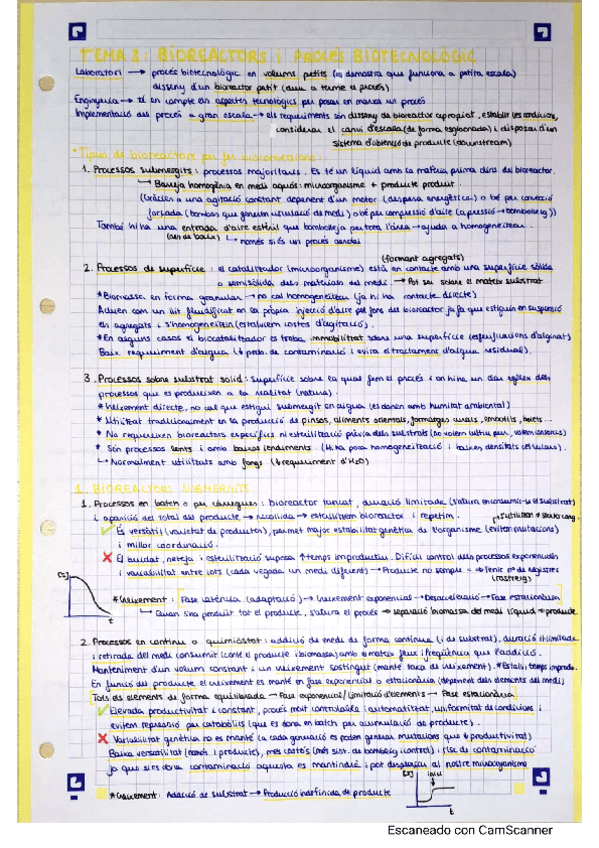 TEMA 3: BIOREACTORS i PROCÉS BIOTECNOLÒGIC
Laboratori → procés biotecnològic en volums petits (es demostra que funciona a petita escala)
disseny d'un bioreactor petit (duu a terme el procés)
Enginyeria → té en compte els aspectes tecnològics per posar en marxa un procés
Implementació del procés a gran escala → els requeriments són disseny de bioreactor apropiat, establir les condicions,
considerar el canvi d'escala (de forma esglaonada) i disposar d'un
sistema d'obtenció de producte (downstream)
*Tipus de bioreactors per fer bioconversions:
1. Processos submergits: processos majoritaris. Es té un líquid amb la matèria prima dins del bioreactor.
↳ Barreja homogènia en medi aquós: microorganisme + producte produit.
(Gràcies a una agitació constant depenent d'un motor (despesa energètica) o bé per convecció
forçada (bombas que generen circulació de medi) o bé per compressió d'aire (a pressió → bombolleig))
També hi ha una entrada d'aire estèril que bombolleja per tota l'àrea → ajuda a homogeneitzar.
(des de baix) ↳ només si és un procés aerobi
(formant agregats)
2. Processos de superfície: el catalitzador (microorganisme) està en contacte amb una superfície sòlida
o semisòlida dels materials del medi. → Pot ser sobre el mateix substrat
*Biomassa en forma granular → no cal homogeneitzar (ja hi ha contacte directe)
Actuen com un llit fluidificat en la pròpia injecció d'aire pel fons del bioreactor ja fa que estiguin en suspensió
en agregats i s'homogeneitzin (estalviem costos d'agitació).
*En alguns casos el biocatalitzador es troba immobilitzat sobre una superfície (esferificacions d'alginat)
Baix requeriment d'aigua (↓ prob. de contaminació i evita el tractament d'aigua residual).
3. Processos sobre substrat sòlid: superfície sobre la qual fem el procés i on hi ha un clar reflex dels
processos que es produeixen a la realitat (natura).
*Creixement directe, no cal que estigui submergit en aigua (es donen amb humitat ambiental)
*Utilitzat tradicionalment en la producció de pinsos, aliments orientals, formatges curats, embotits, bolets...
* No requereixen bioreactors específics ni esterilització prèvia dels substrats (no volem cultiu pur, volem consorcis)
* Són processos lents i amb baixos rendiments (Hi ha poca homogeneïtzació i baixes densitats cel·lulars).
↳ Normalment utilitzats amb fongs (↓ requeriment d'H2O)
1. BIOREACTORS SUBMERGITS
1. Processos en batch o per càrregues: bioreactor tancat, duració limitada (s'atura en consumir-se el substrat)
i aparició del total del producte → recollida → esterilitzem bioreactor i repetim.
✓ És versàtil (varietat de productes), permet major estabilitat genètica de l'organisme (eviten mutacions)
i millor coordinació.
✗ El buidat, neteja i esterilització suposa ↑ temps improductiu. Difícil control dels processos exponencials
i variabilitat entre lots (cada vegada un medi diferent) → Producte no sempre = → Tenir nº de registres
(rastreig)
[S]
t
*Creixement: Fase latència (adaptació) → Creixement exponencial → Desacceleració → Fase estacionària
↳ Quan s'ha produït tot el producte, s'atura el procés → separació biomassa del medi líquid → producte
2. Processos en continu o quimiostat: addició de medi de forma contínua (i de substrat), duració il·limitada
i retirada del medi consumit (conté el producte i biomassa) amb el mateix fluxe i freqüència que l'addició.
Manteniment d'un volum constant i un creixement sostingut (manté taxa de creixement). *Estalvi temps improd.
En funció del producte el creixement es manté en fase exponencial o estacionària (depenent dels elements del medi)
Tots els elements de forma equilibrada → Fase exponencial / Limitació d'elements → Fase estacionària
✓ Elevada productivitat i constant, procés molt controlable i automatitzat, uniformitat de condicions i
evitem repressió per catabòlits (que es dona en batch per acumulació de producte).
✗ Variabilitat genètica no es manté (a cada generació es poden generar mutacions que ↓ productivitat)
Baixa versatilitat (procés i producte), més costós (més sist. de bombeig i control) i risc de contaminació
ja que si es dona contaminació aquesta es mantindrà i pot desplaçar al nostre microorganisme
[S] inici
t
*Creixement: Addició de substrat → Producció indefinida de producte
Escaneado con CamScanner